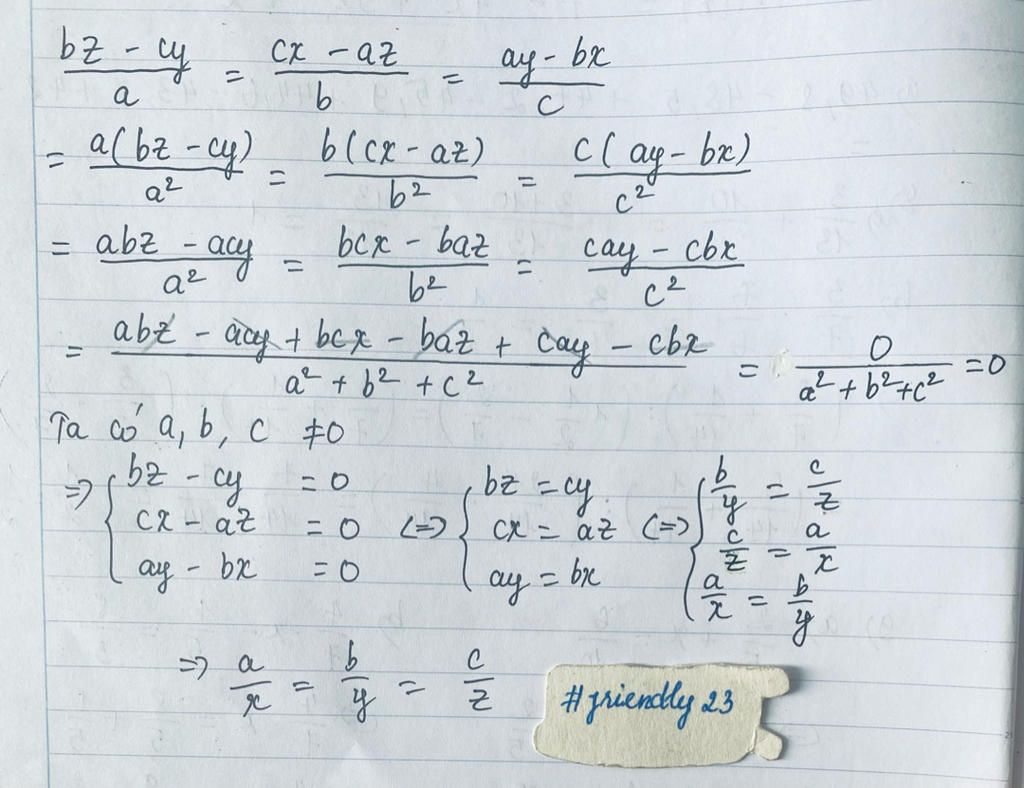 bz - cy / a = cx - az / b = ay - bx / c
= a(bz - cy) / a² = b(cx - az) / b² = c(ay - bx) / c²
= abz - acy / a² = bcx - baz / b² = cay - cbx / c²
= abz - acy + bcx - baz + cay - cbx / a² + b² + c² = 0 / a² + b² + c² = 0
Ta có a, b, c ≠ 0
=> { bz - cy = 0 <=> { bz = cy <=> { b/y = c/z
cx - az = 0 cx = az c/z = a/x
ay - bx = 0 ay = bx a/x = b/y
=> a/x = b/y = c/z
#friendly 23